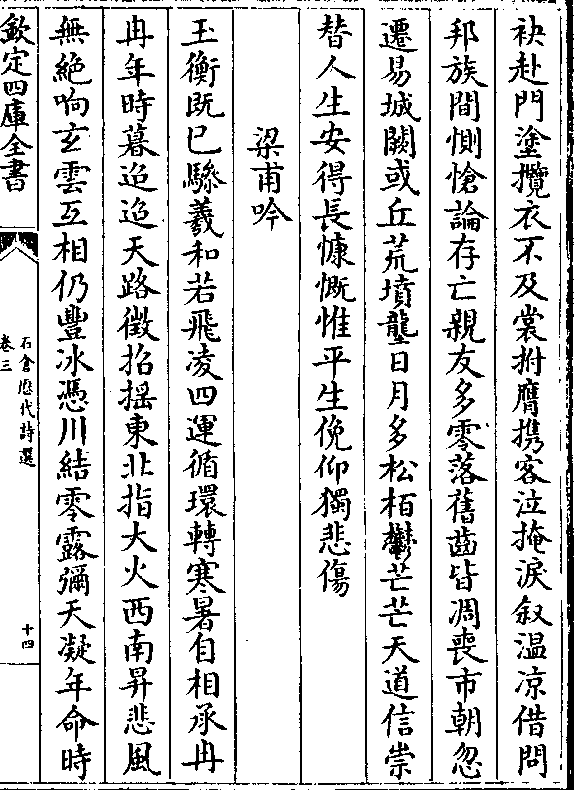 袂赴門塗攬衣不及裳拊膺携客泣掩淚叙温凉借問
邦族間惻愴論存亡親友多零落舊齒皆凋喪市朝忽
遷易城闕或丘荒墳壟日月多松栢鬱芒芒天道信崇
替人生安得長慷慨惟平生俛仰獨悲傷
梁甫吟
玉衡既已驂羲和若飛凌四運循環轉寒暑自相承冉
冉年時暮迢迢天路徵招揺東北指大火西南昇悲風
無絶响玄雲互相仍豐冰憑川結零露彌天凝年命時
欽定四庫全書
石倉歴代詩選
卷三
十四